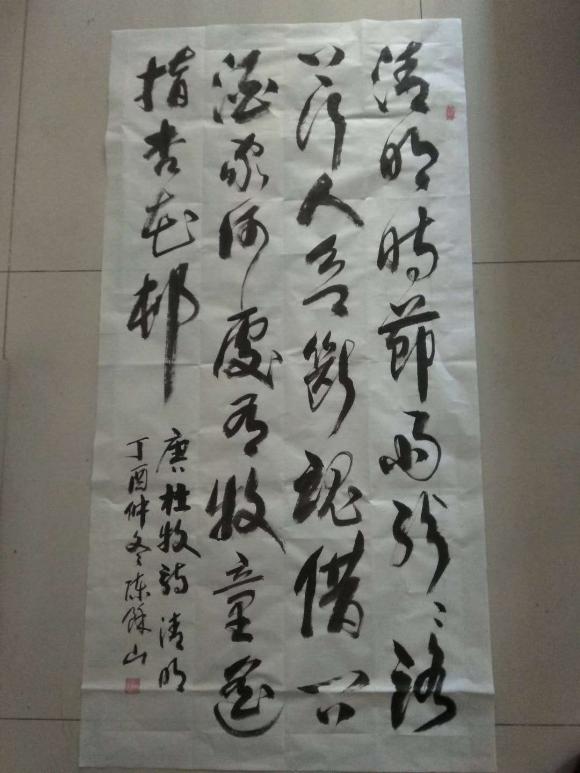 清明時節雨紛〻路
上行人欲斷魂借问
酒家何處有牧童遥
指杏花邨
唐杜牧詩清明
丁酉仲冬陈山